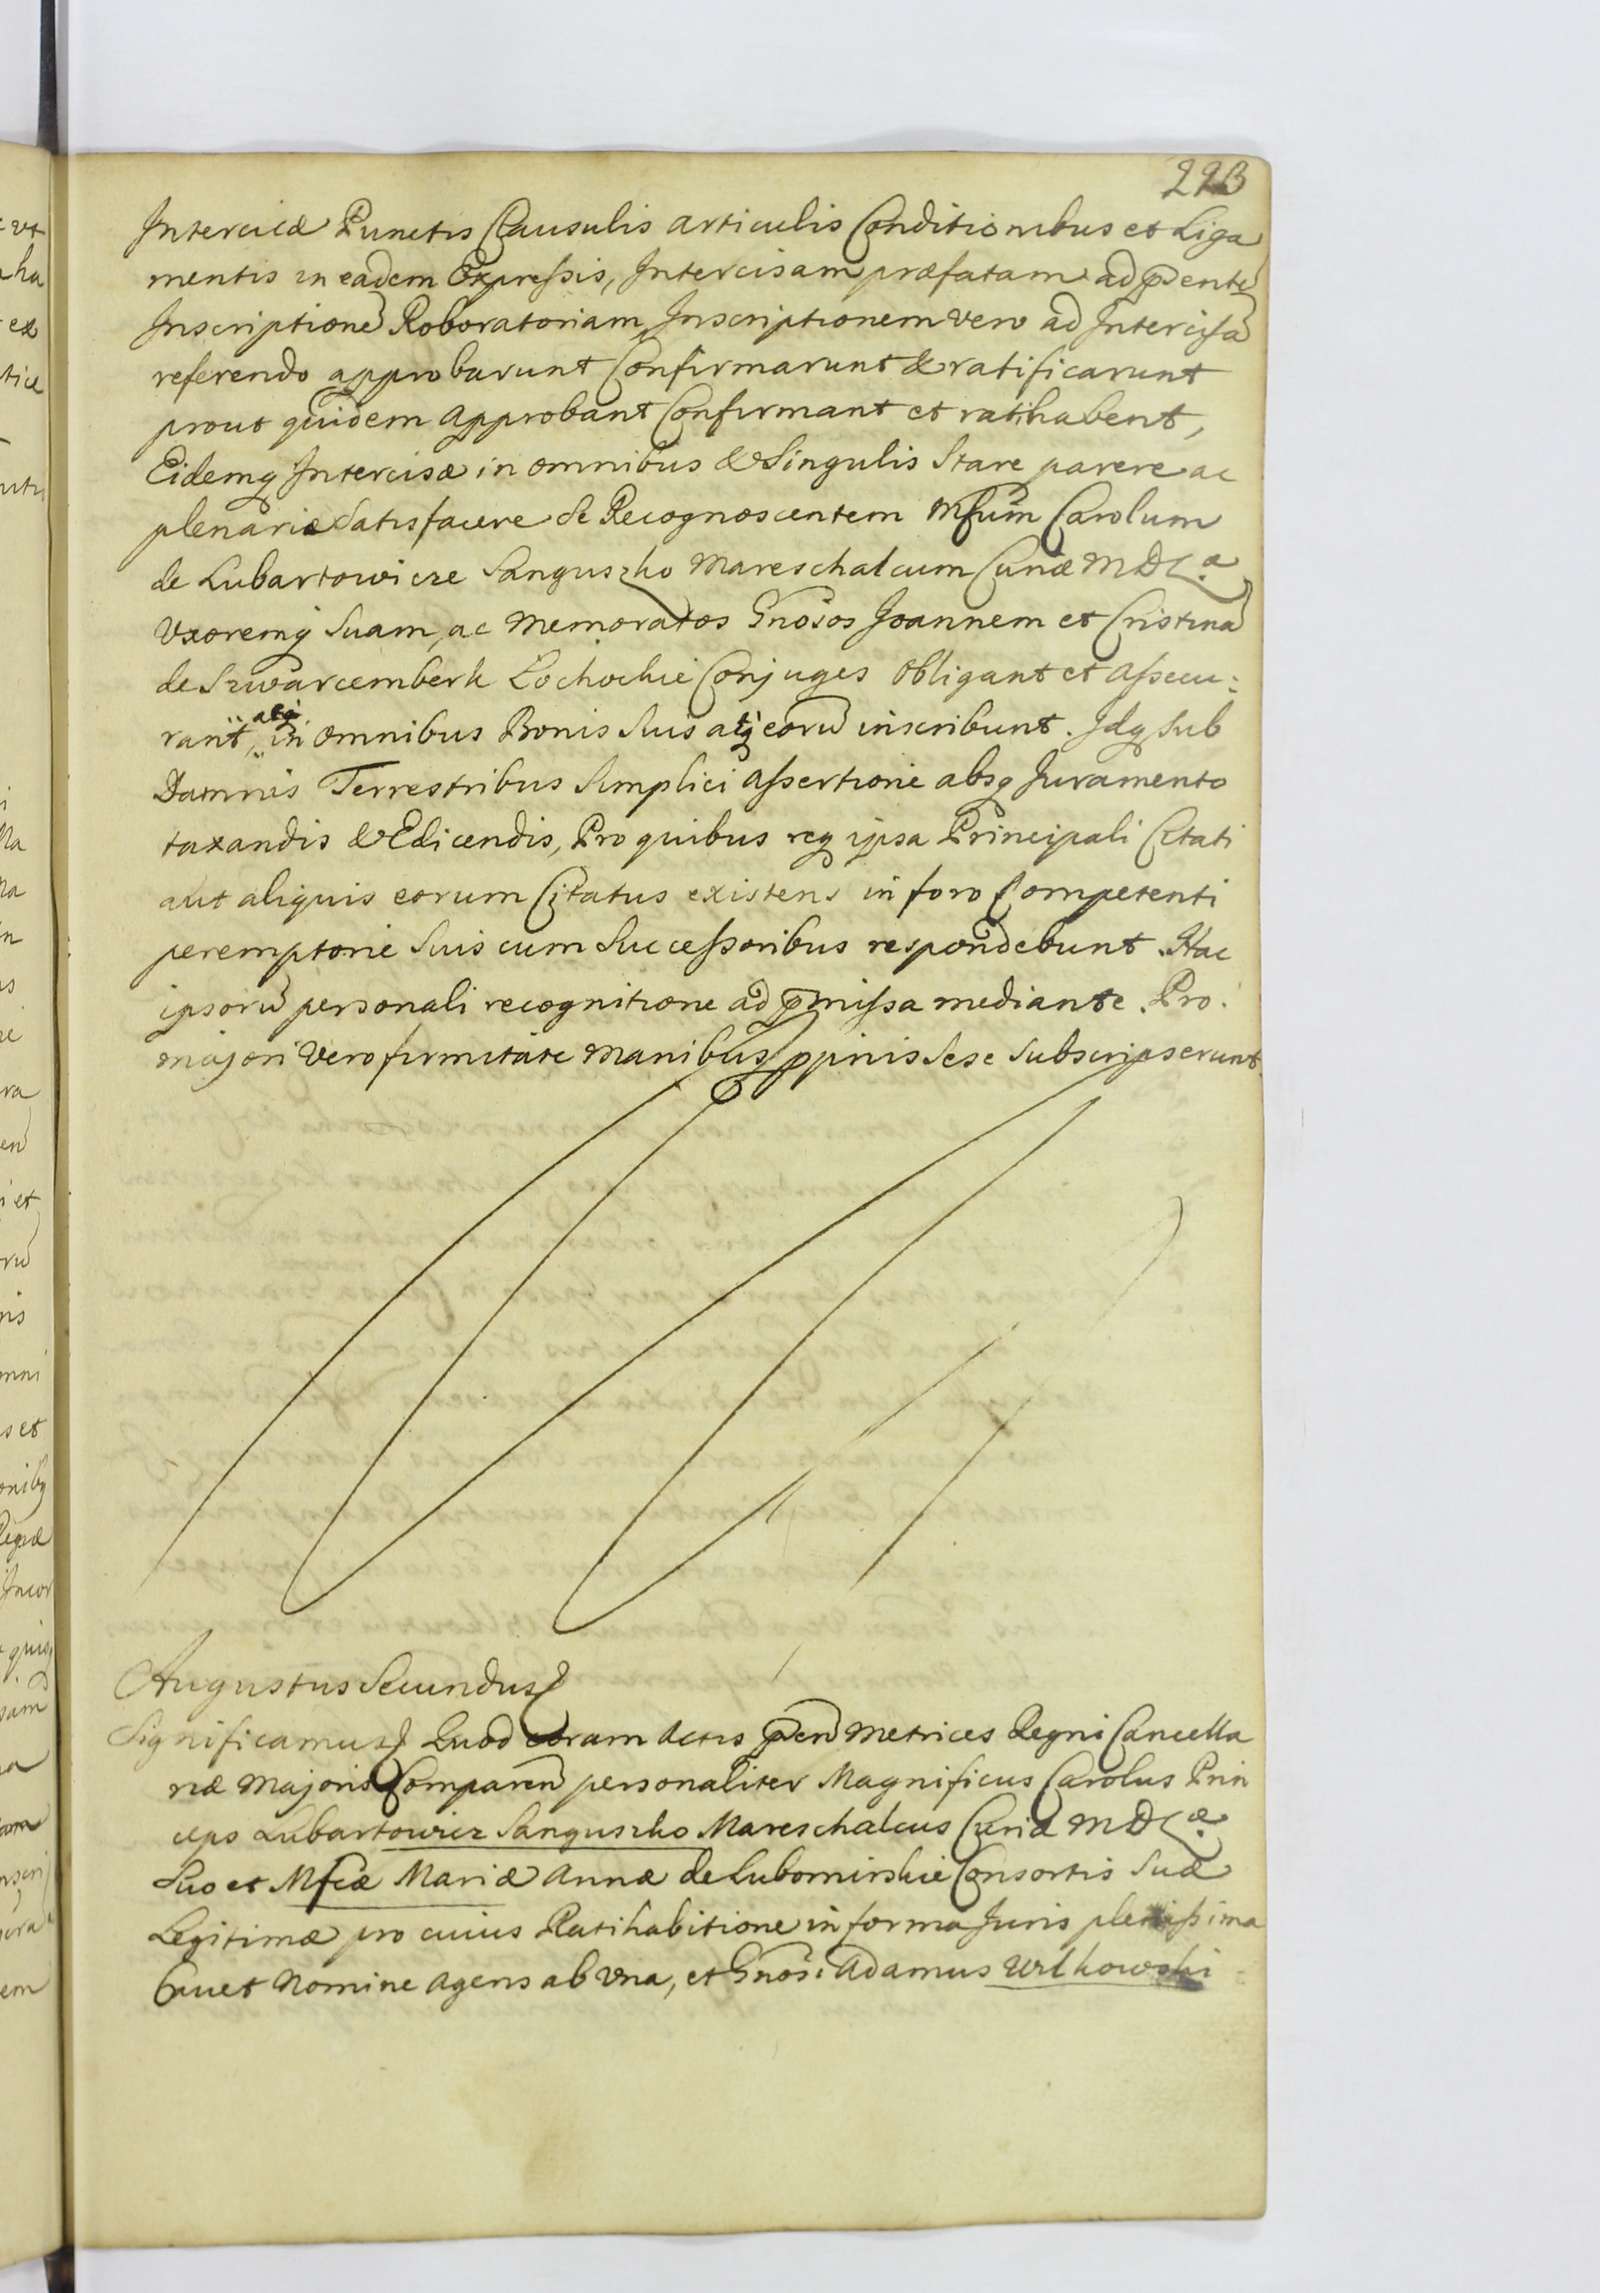 223
Intercisæ Punctis Clausulis articulis Conditionibus et Liga
mentis in eadem Expressis, Intercisam præfatam ad pñtē
Inscriptionē Roboratoriam Inscriptionem vero ad Intercisā
referendo approbarunt Confirmarunt & ratificarunt
prout quidem approbant Confirmant et ratihabent,
Eidemq Intercisæ in omnibus & Singulis Stare parere ac
plenarie Satisfacere se Recognoscentem Mfcum Carolum
de Lubartowicze Sanguszko Mareschalcum Curiæ M D L æ
Uxoremq Suam, ac Memoratos Gnosos Joannem et Cristinā
de Szwarcemberk Łochockie Conjuges obligant et assecu:
rant, atq in omnibus Bonis Suis atq eorū inscribunt. Idq Sub
Damnis Terrestribus Simplici assertione absq Juramento
taxandis & Edicendis, Pro quibus req ipsa Principali Citati
aut aliquis eorum Citatus existens in foro Competenti
peremptorie Suis cum Successoribus respondebunt. Hac
ipsorū personali recognitione ad pmissa mediante. Pro
majori Vero firmitate manibus ppriis Sese Subscripserunt.
Augustus Secundus
Significamus Quod coram Actis pñ Metrices Regni Cancella
riæ Majoris Comparen personaliter Magnificus Carolus Prin
ceps Lubartowicz Sanguszko Mareschalcus Curiæ M D L æ
Suo et Mfcæ Mariæ Annæ de Lubomirskie Consortis Suæ
Legitimæ pro cuius Ratihabitione in forma Juris plenissima
Cavet Nomine Agens ab una, et Gnosi Adamus Witkowski